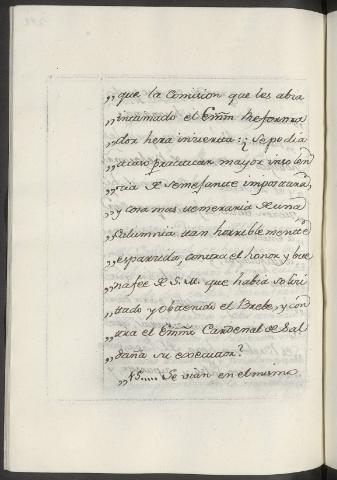 „que la Comision que les abia
„intimado el Emm̃o Reforma
„dor hera invierta: ¿ Se podia
„acaso practicar mayor insolen
„cia de semejante impostura,
„y cosa mas temeraria de una
„Calumnia tan horriblemente
„esparcida, contra el honor y bue
„na fee de S. M. que habia solici
„tado y obtenido el Brebe, y con
„tra el Emm̃o Cardenal de Sal
„daña su executor?
„45..... Se vian en el mismo